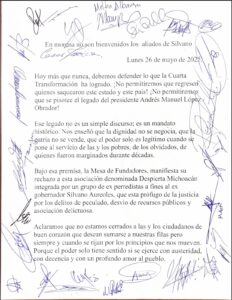 En morena no son bienvenidos los aliados de Silvano
Lunes 26 de mayo de 2025
Hoy más que nunca, debemos defender lo que la Cuarta
Transformación ha logrado. ¡No permitiremos que regresen
quienes saquearon este estado y este país! ¡No permitiremos
que se pisotee el legado del presidente Andrés Manuel López
Obrador!
Ese legado no es un simple discurso; es un mandato
histórico. Nos enseñó que la dignidad no se negocia, que la
patria no se vende, que el poder solo es legítimo cuando se
pone al servicio de las y los pobres, de los olvidados, de
quienes fueron marginados durante décadas.
Bajo esa premisa, la Mesa de Fundadores, manifiesta su
rechazo a esta asociación denominada Despierta Michoacán
integrada por un grupo de ex perredistas a fines al ex
gobernador Silvano Aureoles, que está prófugo de la justicia
por los delitos de peculado, desvío de recursos públicos y
asociación delictuosa.
Aclaramos que no estamos cerrados a las y los ciudadanos de
buen corazón que desean sumarse a nuestras filas pero
siempre y cuando se rijan por los principios que nos mueven.
Porque el poder solo tiene sentido si se ejerce con austeridad,
con decencia y con un profundo amor al pueblo.